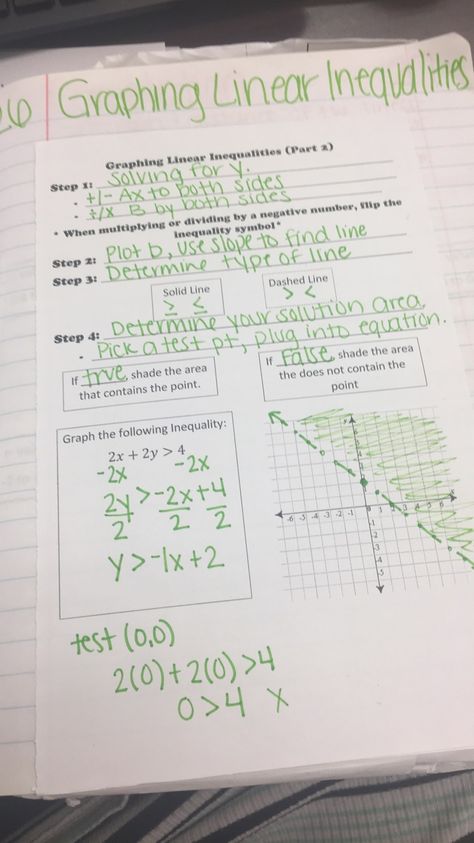 26 Graphing Linear Inequalities
Graphing Linear Inequalities (Part 2)
Step 1: Solving for y.
• +/- Ax to both sides
• ÷/x B by both sides
* When multiplying or dividing by a negative number, flip the
inequality symbol*
Step 2: Plot b, use slope to find line
Step 3: Determine type of line
Solid Line
≥ ≤
Dashed Line
> <
Step 4: Determine your solution area
• Pick a test pt, plug into equation.
If true, shade the area
that contains the point.
If False, shade the area
the does not contain the
point
Graph the following Inequality:
2x + 2y > 4
-2x -2x
2y > -2x + 4
2 2 2
y > -1x + 2
-6 -5 -4 -3 -2 -1
test (0,0)
2(0) + 2(0) > 4
0 > 4 X